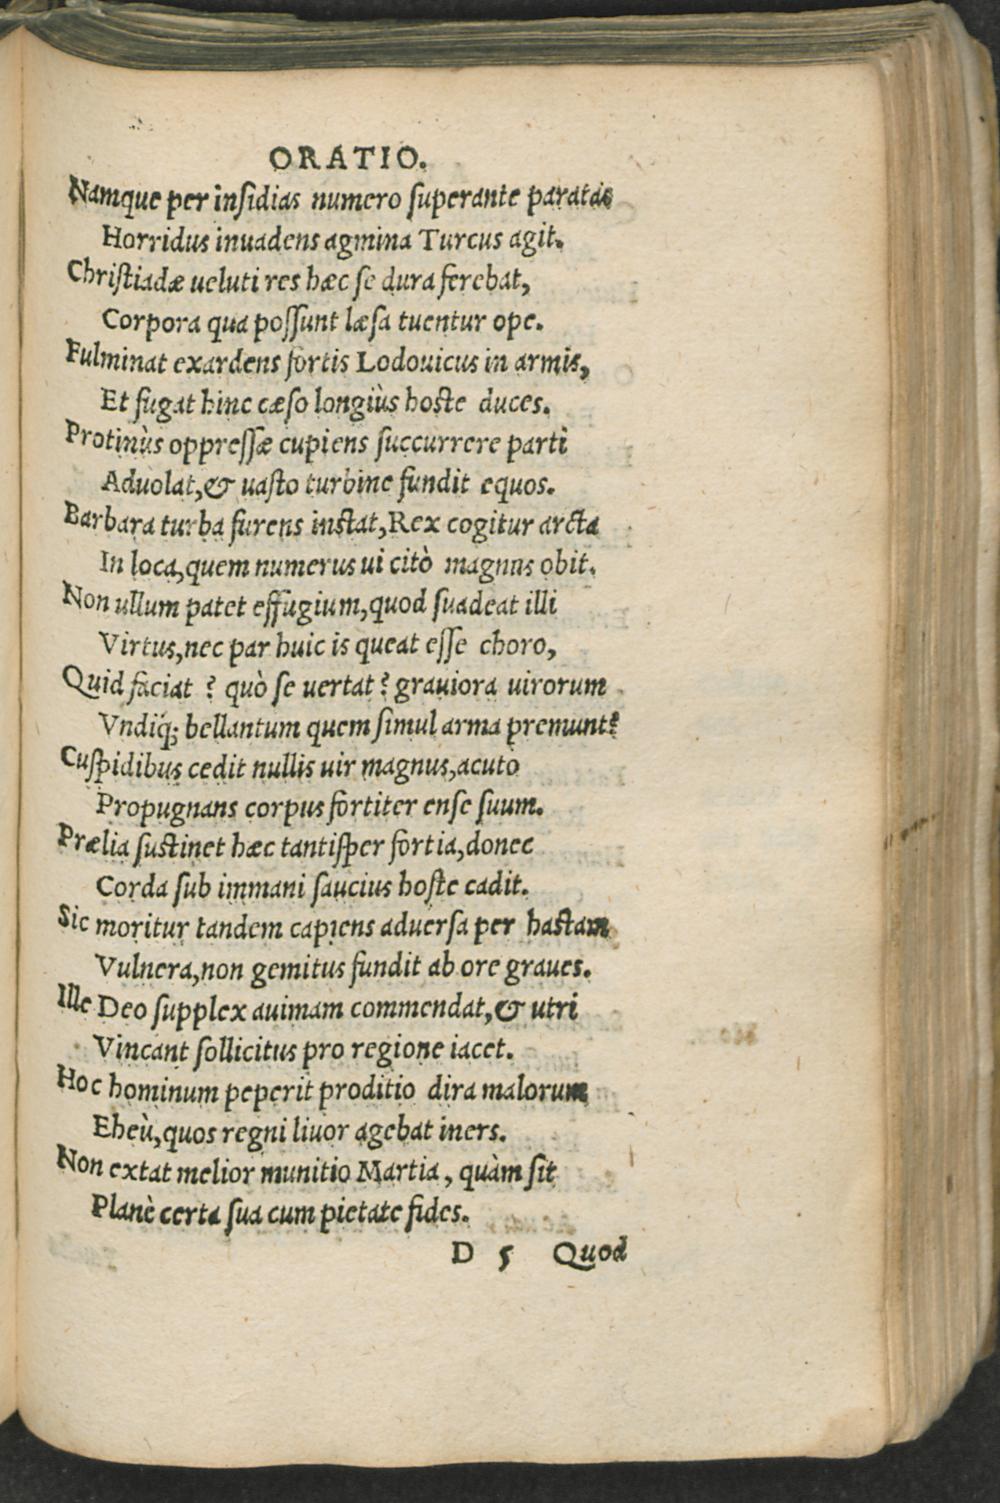 ORATIO.
Namque per insidias numero superante paratas
Horridus inuadens agmina Turcus agit.
Christiadæ ueluti res hæc se dura ferebat,
Corpora qua possunt læsa tuentur ope.
Fulminat exardens fortis Lodouicus in armis,
Et fugat hinc cæso longiùs hoste duces.
Protinùs oppressæ cupiens succurrere parti
Aduolat, & uasto turbine fundit equos.
Barbara turba furens instat, Rex cogitur arcta
In loca, quem numerus ui citò magnus obit.
Non ullum patet effugium, quod suadeat illi
Virtus, nec par huic is queat esse choro,
Quid faciat ? quò se uertat ? grauiora uirorum
Vndiq; bellantum quem simul arma premunt?
Cuspidibus cedit nullis uir magnus, acuto
Propugnans corpus fortiter ense suum.
Prælia sustinet hæc tantisper fortia, donec
Corda sub immani saucius hoste cadit.
Sic moritur tandem capiens aduersa per hastam
Vulnera, non gemitus fundit ab ore graues.
Ille Deo supplex auimam commendat, & utri
Vincant sollicitus pro regione iacet.
Hoc hominum peperit proditio dira malorum
Eheù, quos regni liuor agebat iners.
Non extat melior munitio Martia, quàm sit
Planè certa sua cum pietate fides.
D 5 Quod